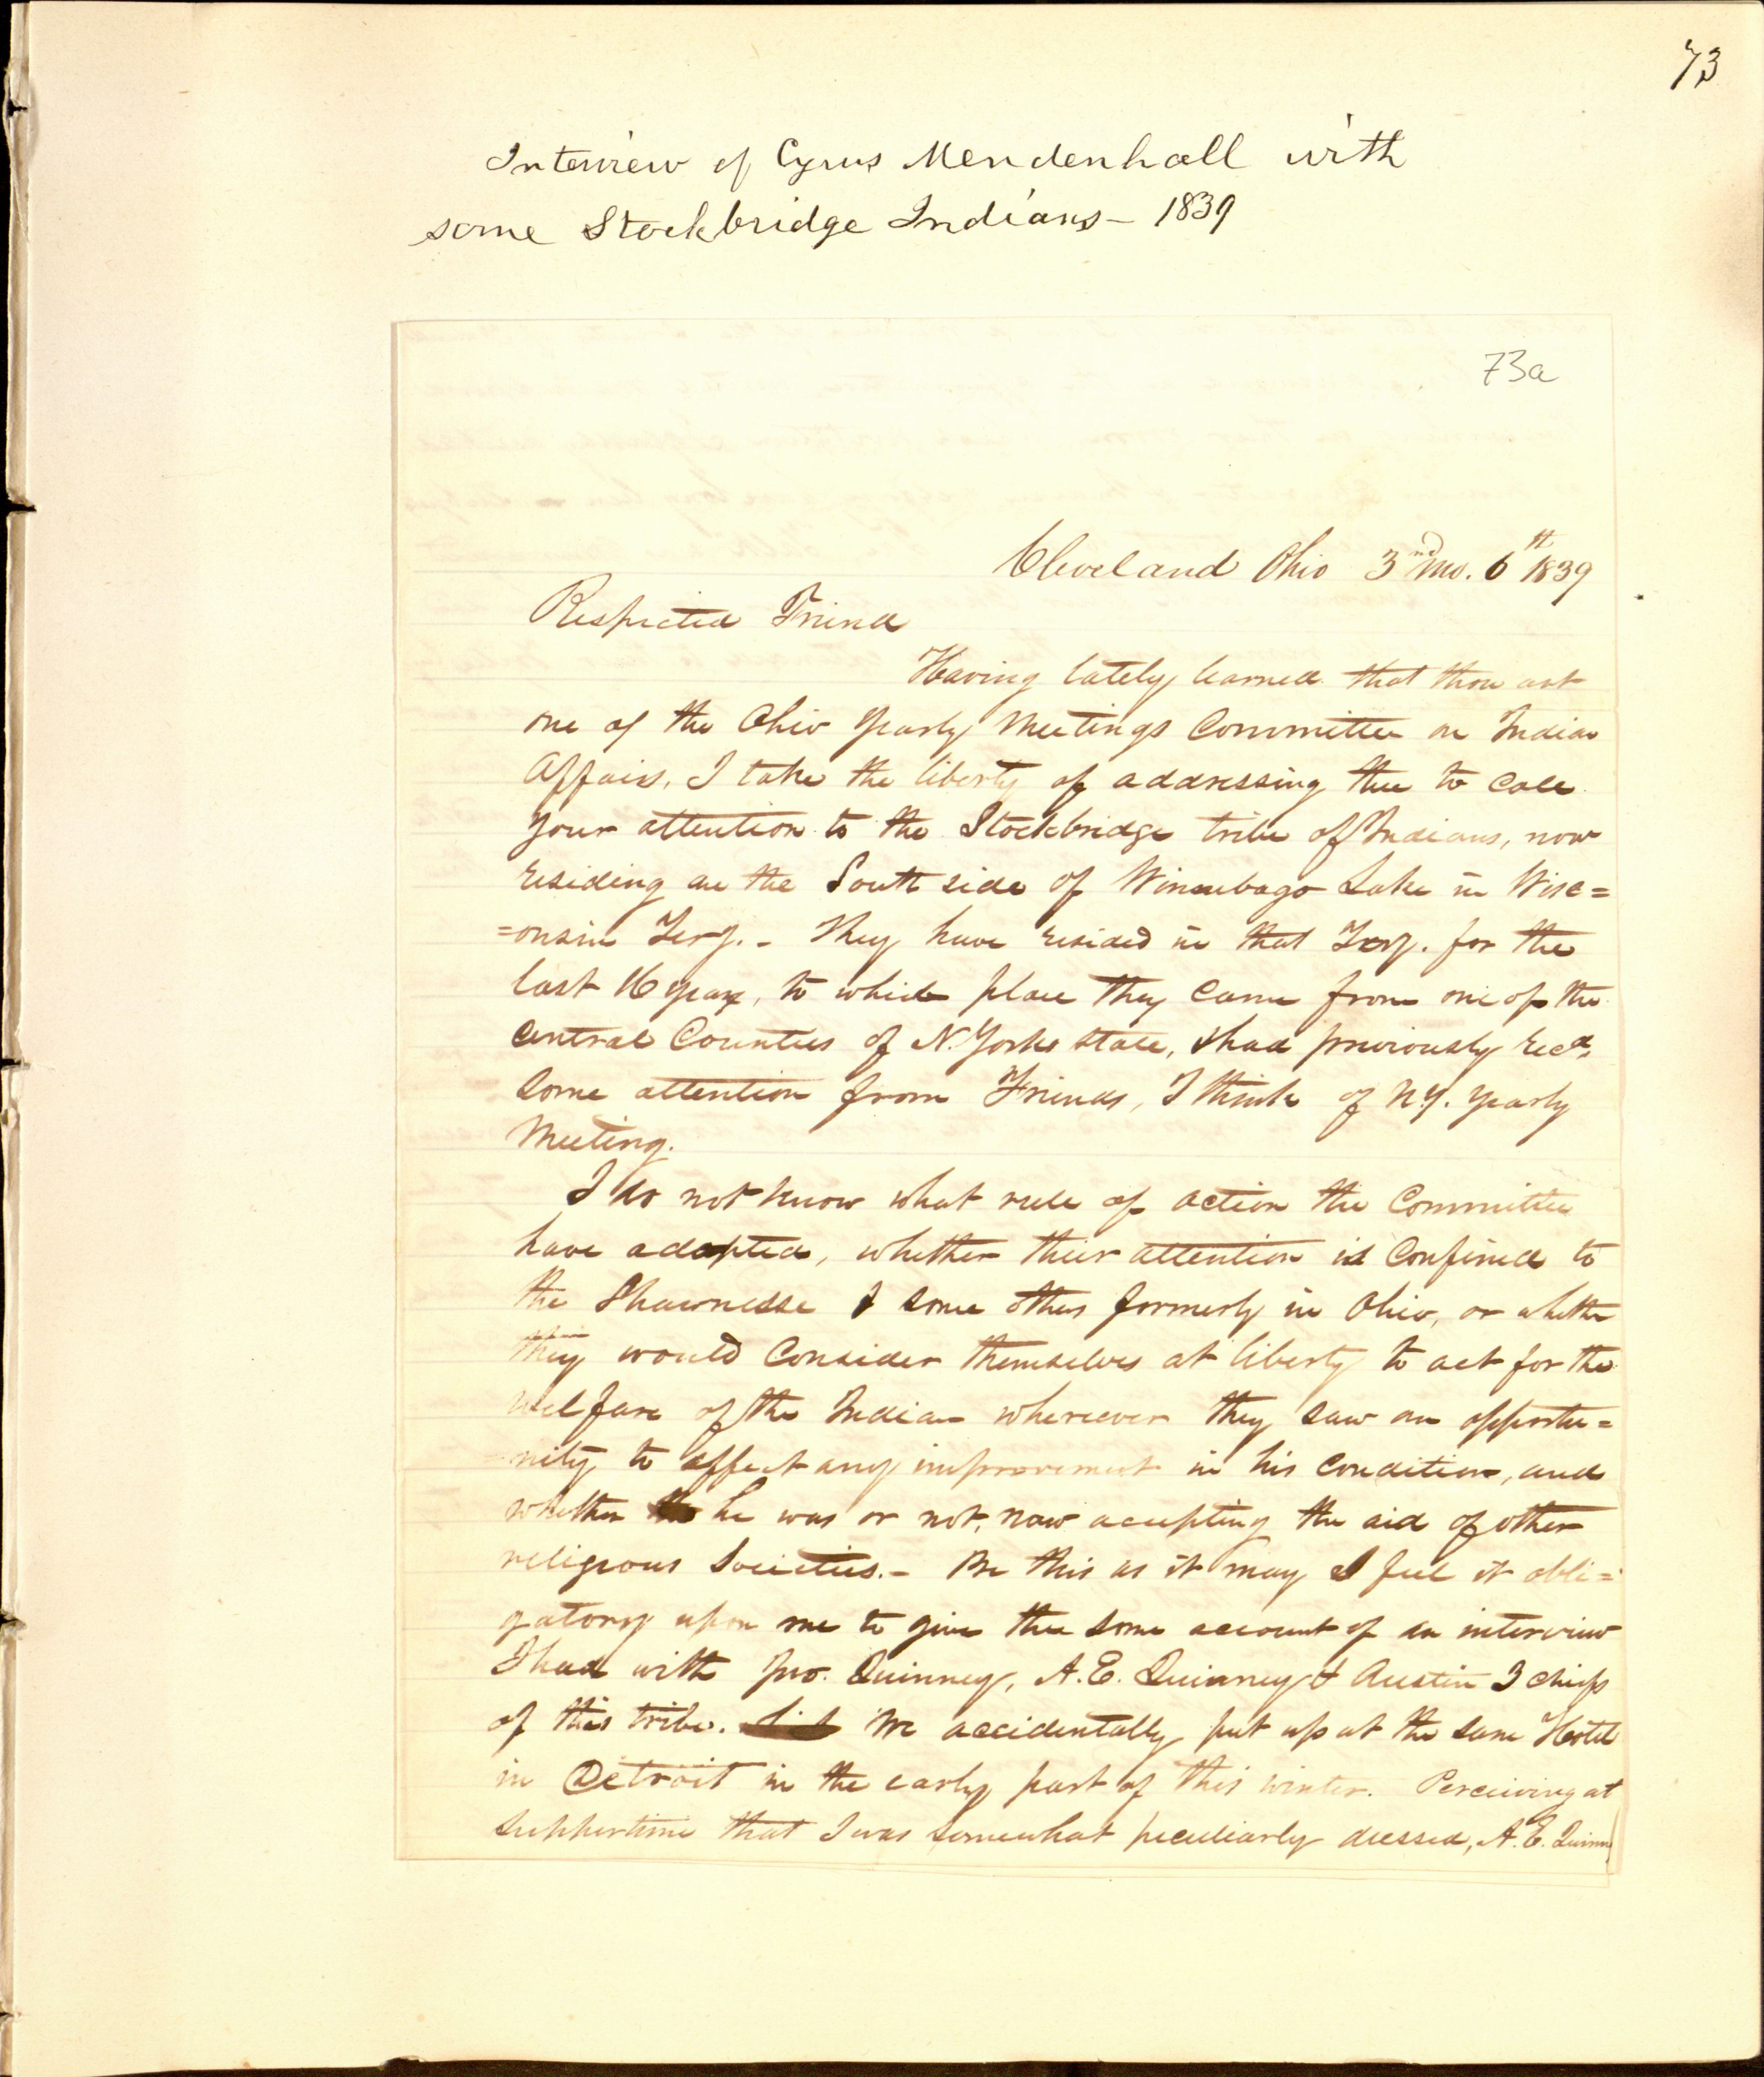 73
Interview of Cyrus Mendenhall with
some Stockbridge Indians - 1839
73a
Cleveland Ohio 3nd mo. 6th 1839
Respected Friend
Having lately learned that thou art
one of the Ohio Yearly Meetings Committee on Indian
Affairs, I take the liberty of addressing thee to call
your attention to the Stockbridge tribe of Indians, now
residing on the South side of Winnebago Lake in Wisc=
=onsin Tery. - They have resided in that Tery. for the
last 16 years, to which place they came from one of the
central Counties of N. York state, & had previously recd.
some attention from Friends, I think of N.Y. Yearly
Meeting.
I do not know what rule of action the Committee
have adopted, whether their attention is confined to
the Shawnesse & some others formerly in Ohio, or whether
they would consider themselves at liberty to act for the
welfare of the Indian wherever they saw an opportu=
=nity to affect any improvement in his condition, and
whether he was or not, now accepting the aid of other
religious Societies. - Be this as it may I feel it obli=
gatory upon me to give thee some account of an interview
I had with Jno. Quinney, A. E. Quinney & Austin 3 chiefs
of this tribe. We accidentally put up at the same Hotel
in Detroit in the early part of this winter. Perceiving at
suppertime that I was somewhat peculiarly dressed, A. E. Quinny